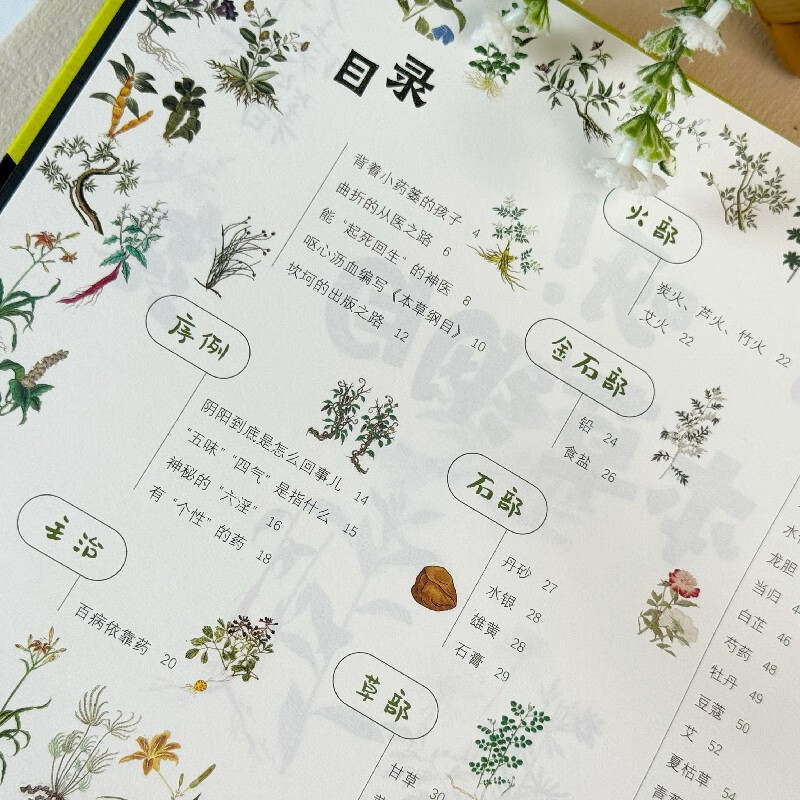 目录
背着小药篓的孩子 4
曲折的从医之路 6
能“起死回生”的神医 8
呕心沥血编写《本草纲目》 10
坎坷的出版之路 12
序例
阴阳到底是怎么回事儿 14
“五味”“四气”是指什么 15
神秘的“六淫” 16
有“个性”的药 18
主治
百病依靠药 20
火部
炭火、芦火、竹火 22
艾火 22
金石部
铅 24
食盐 26
石部
丹砂 27
水银 28
雄黄 28
石膏 29
草部
甘草 30
龙胆
当归
白芷 46
芍药 48
牡丹 49
豆蔻 50
艾 52
夏枯草 54